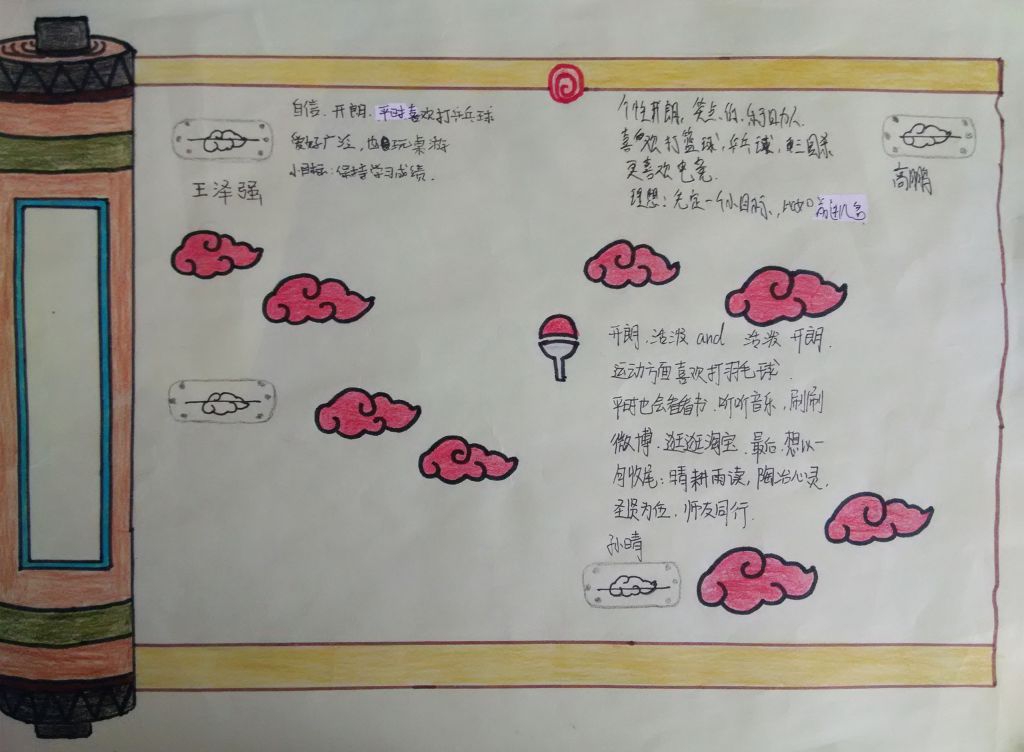 自信、开朗、平时喜欢打乒乓球
爱好广泛,也玩桌游
小目标:保持学习成绩.
王泽强
个性开朗,笑点低,乐于助人.
喜欢打篮球,乒乓球,三国杀
更喜欢电竞.
理想:先定一个小目标,比如
高鹏
开朗,活泼 and 活泼 开朗.
运动方面喜欢打羽毛球.
平时也会看看书.听听音乐,刷刷
微博.逛逛淘宝.最后.想以一
句收尾:晴耕雨读,陶冶心灵,
圣贤为伍,师友同行.
孙晴